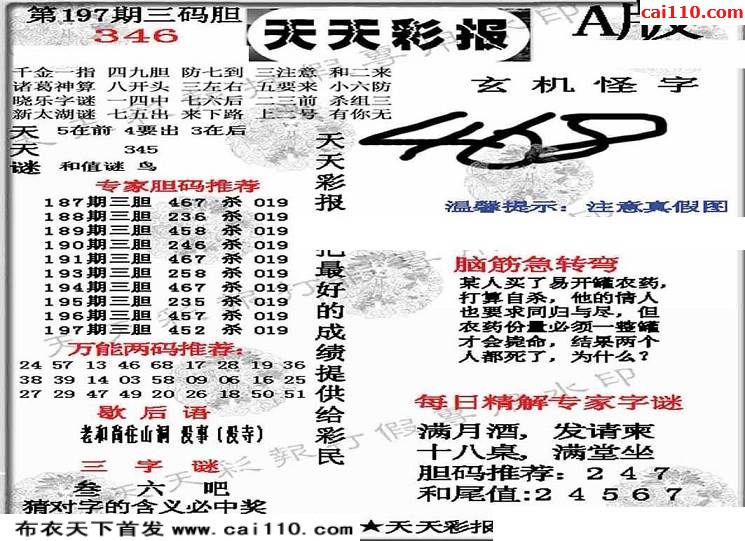 第197期三码胆
346
天天彩报
A版
cai110.com
千金一指 四九胆 防七到 三注意 和二来
诸葛神算 八开头 三左右 五要来 小六防
晓乐字谜 一四中 七六后 二三前 杀组三
新太湖谜 七五出 来下路 上二号 有你无
天 5在前 4要出 3在后
天 345
谜 和值谜 鸟
玄机怪字
温馨提示：注意真假图
专家胆码推荐
187期三胆 467 杀 019
188期三胆 236 杀 019
189期三胆 458 杀 019
190期三胆 246 杀 019
191期三胆 467 杀 019
193期三胆 258 杀 019
194期三胆 467 杀 019
195期三胆 235 杀 019
196期三胆 457 杀 019
197期三胆 452 杀 019
万能两码推荐：
24 57 13 46 68 17 28 19 36
38 39 14 03 58 09 06 16 25
27 29 47 49 20 26 18 50 51
歇后语
老和尚住山洞 没事（没寺）
三字谜
叁六吧
猜对字的含义必中奖
天天彩报
把最好的成绩提供给彩民
脑筋急转弯
某人买了易开罐农药，
打算自杀，他的情人
也要求同归与尽，但
农药份量必须一整罐
才会毙命，结果两个
人都死了，为什么？
每日精解专家字谜
满月酒，发请柬
十八桌，满堂坐
胆码推荐：247
和尾值:24567
布衣天下首发 www.cai110.com
★天天彩报